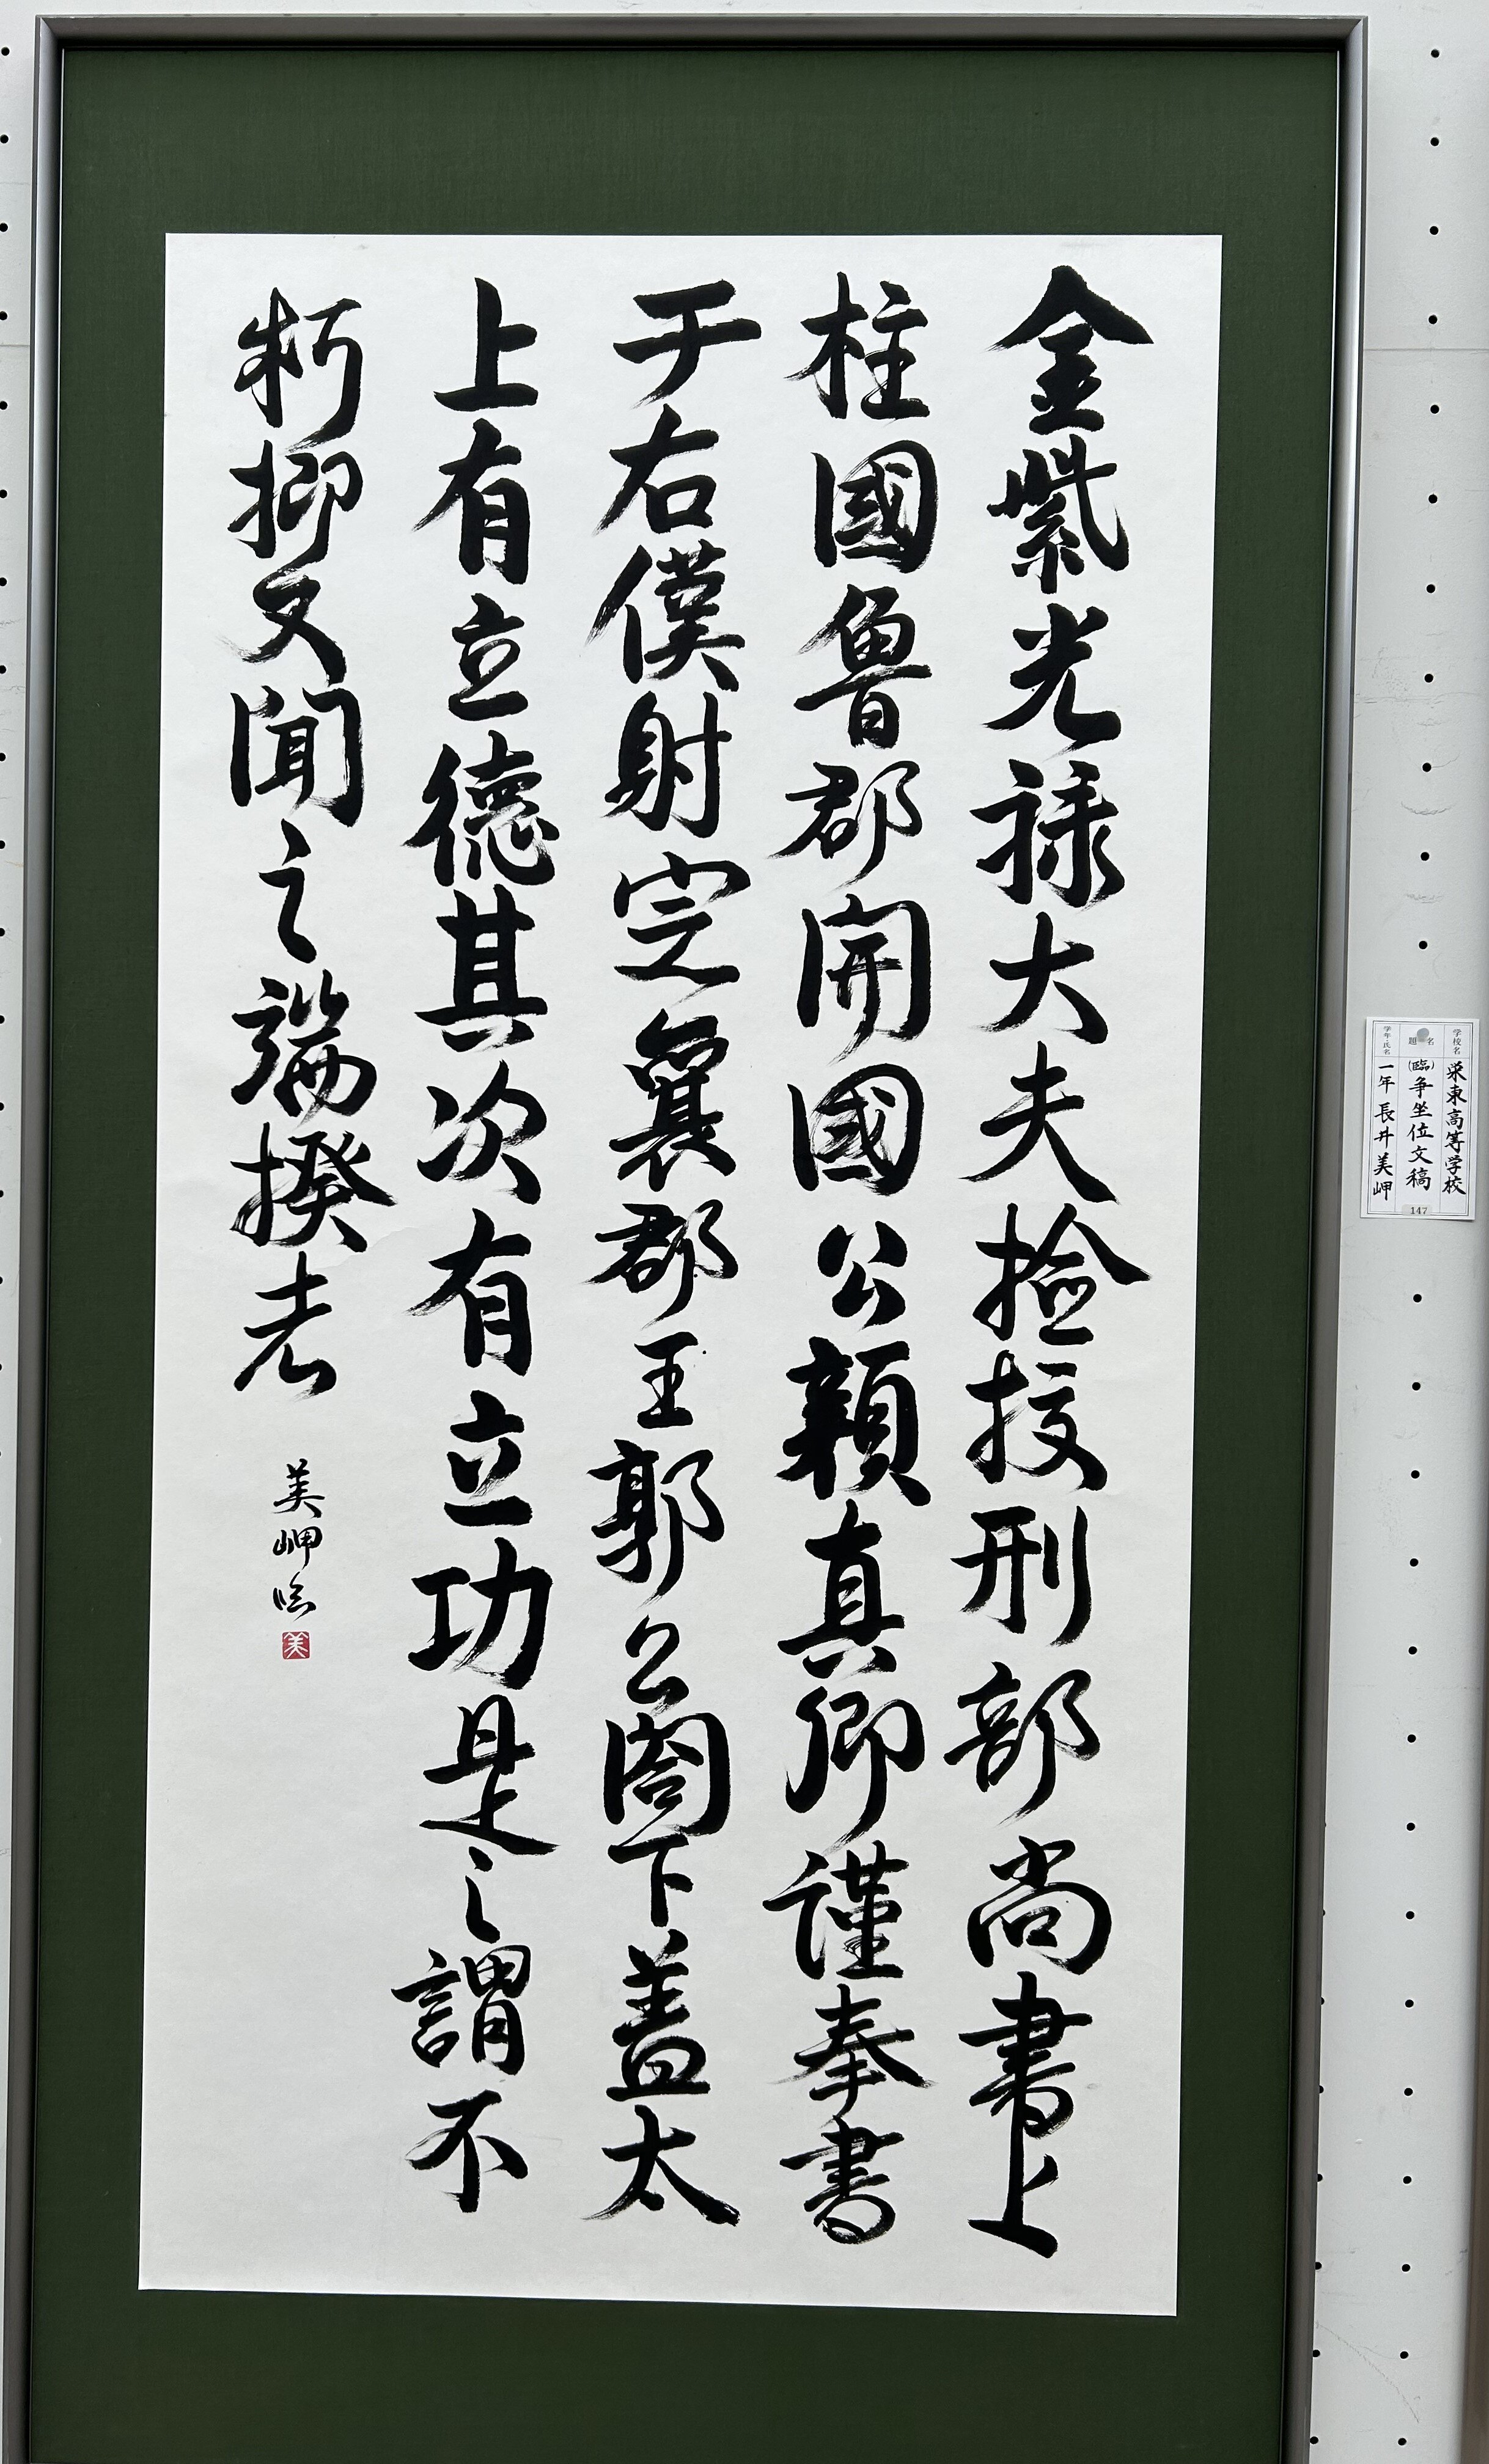 金紫光祿大夫撿挍刑部尚書上
柱國魯郡開國公顏真卿謹奉書
于右僕射定襄郡王郭公閤下蓋太
上有立德其次有立功是之謂不
朽抑又聞之端揆者
美岬臨
美
学校名 栄東高等学校
題名 (臨)争坐位文稿
147
学年・氏名 一年 長井美岬